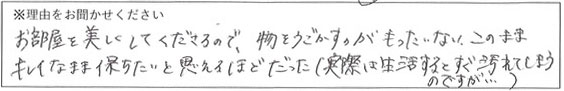 ※理由をお聞かせください
お部屋を美しくしてくださるので、物をうごかすのがもったいない。このまま
キレイなまま保ちたいと思えるほどだった(実際は生活するとすぐ汚れてしまう
のですが…)